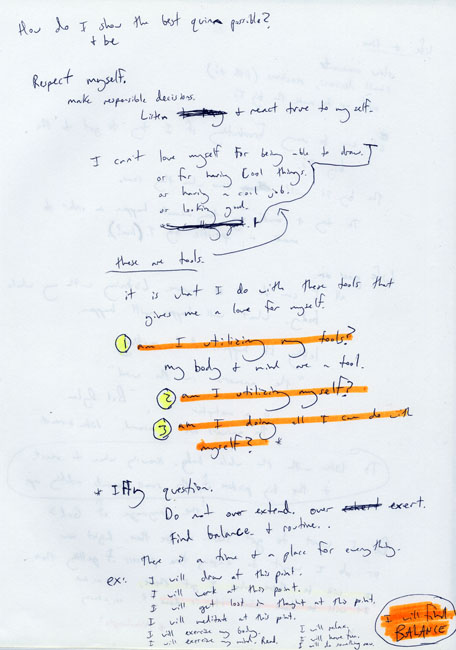 How do I show the best quinn possible?
+ be
Respect myself.
make responsible decisions.
Listen + react true to myself.
I can't love myself for being able to draw.
or for having cool things.
or having a cool job.
or looking good.
these are tools.
it is what I do with these tools that
gives me a love for myself.
1 am I utilizing my tools?
my body + mind are a tool.
2 am I utilizing myself?
3 am I doing all I can do with
myself? *
* Iffy question.
Do not over extend. over exert.
Find balance. + routine..
There is a time + a place for everything.
ex: I will draw at this point.
I will work at this point.
I will get lost in thought at this point.
I will meditate at this point.
I will exercise my body.
I will exercise my mind. Read.
I will relax.
I will have fun.
I will do something new.
I will find
BALANCE